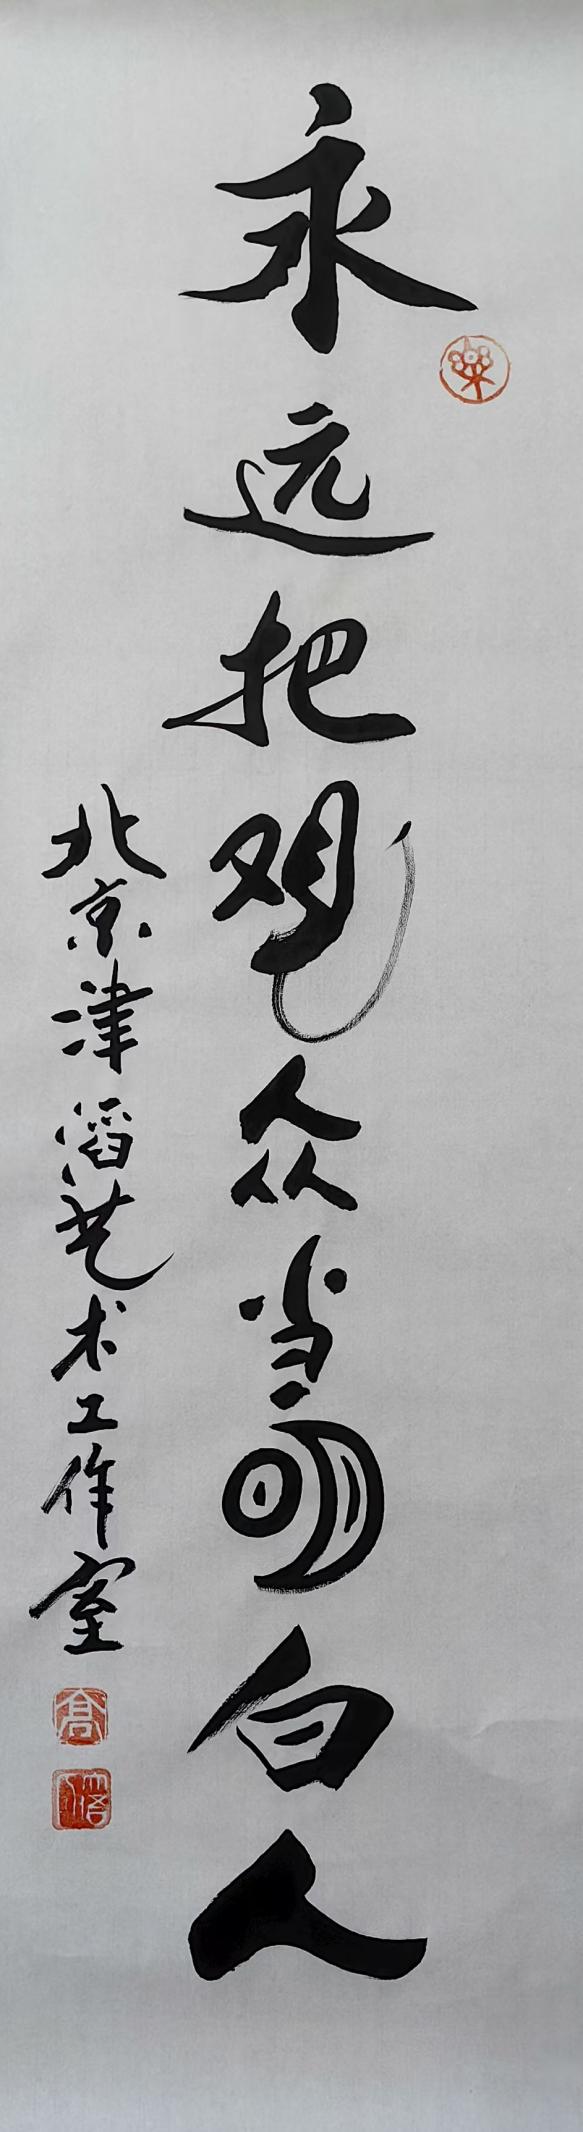 永远把观众当明白人
北京津滔艺术工作室
高